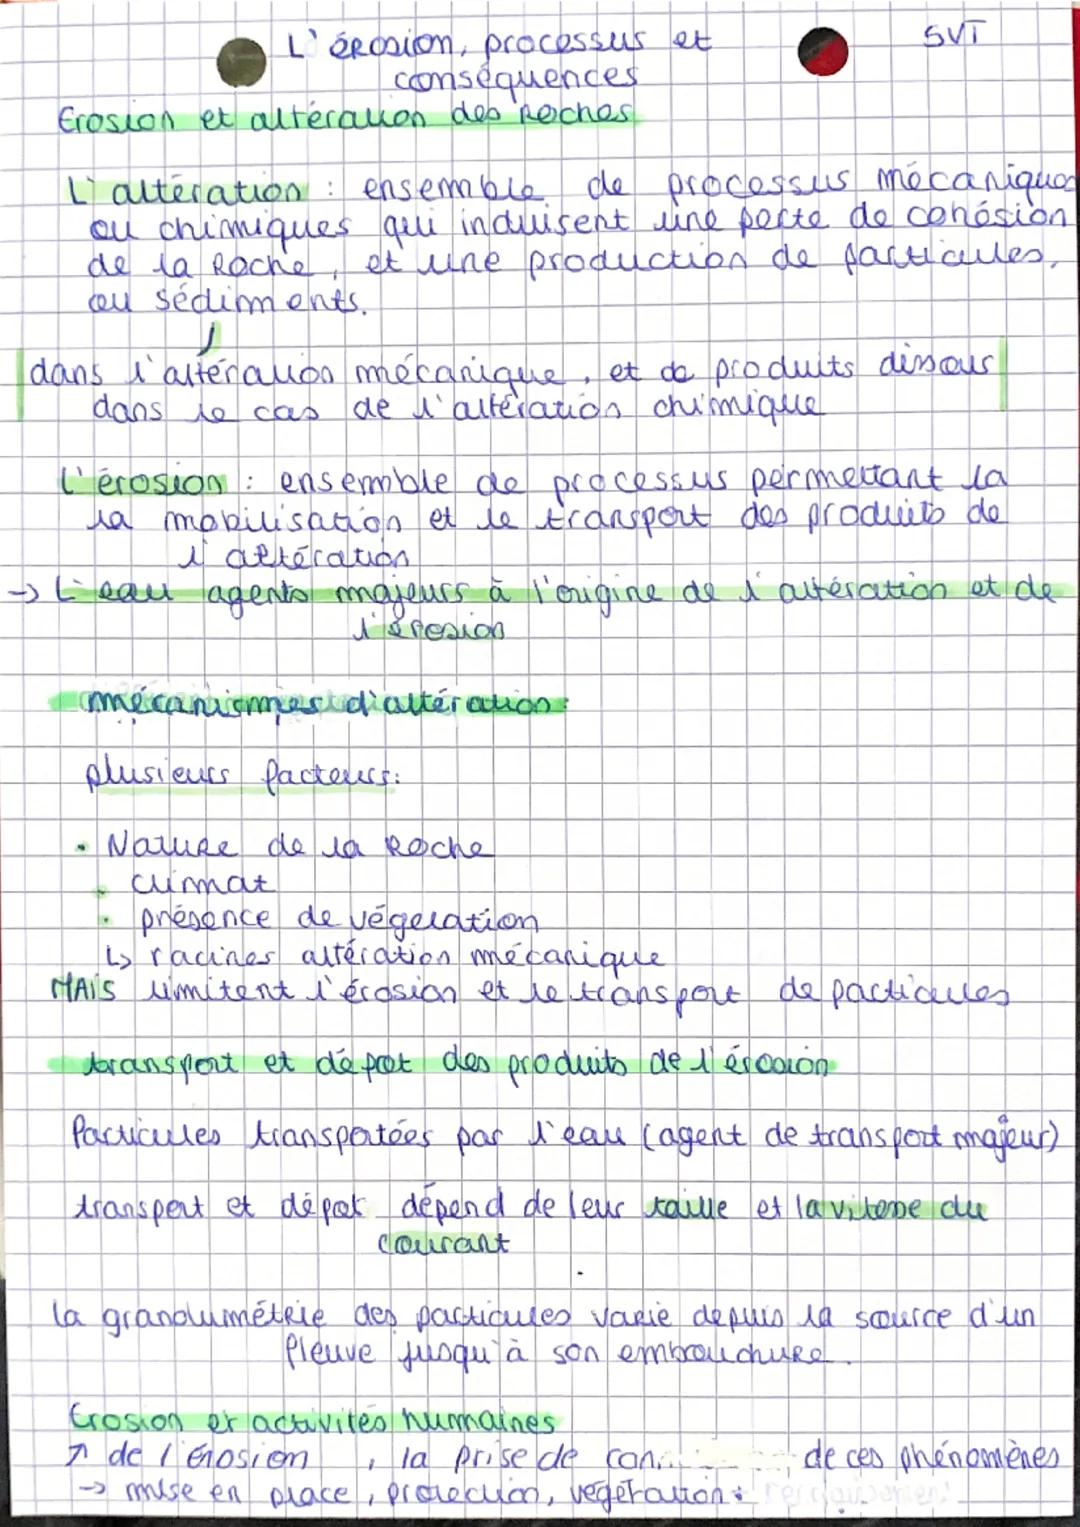 L'érosion, processus et
SVT
conséquences
Erosion et altération des Roches
L'altération : ensemble de processus mécaniques
ou chimiques qui induisent une perte de cohésion
de la Roche, et une production de particules,
ou sédiments.
dans l'altération mécanique, et de produits dissous
dans le cas de l'altération chimique
L'érosion : ensemble de processus permettant la
la mobilisation et le transport des produits de
l'altération
→ L'eau agents majeurs à l'origine de l'altération et de
l'érosion
mécanismes d'altération :
plusieurs facteurs:
• Nature de la Roche
• climat
• présence de végétation
↳ racines altération mécanique
MAIS limitent l'érosion et le transport de particules
transport et dépot des produits de l'érosion
Particules transportées par l'eau (agent de transport majeur)
transport et dépot dépend de leur taille et la vitesse du
courant
la granolumétrie des particules varie depuis la source d'un
fleuve jusqu'à son embouchure.
Erosion et activités humaines
↗ de l'érosion, la prise de con de ces phénomènes
→ mise en place, protection, végétation +